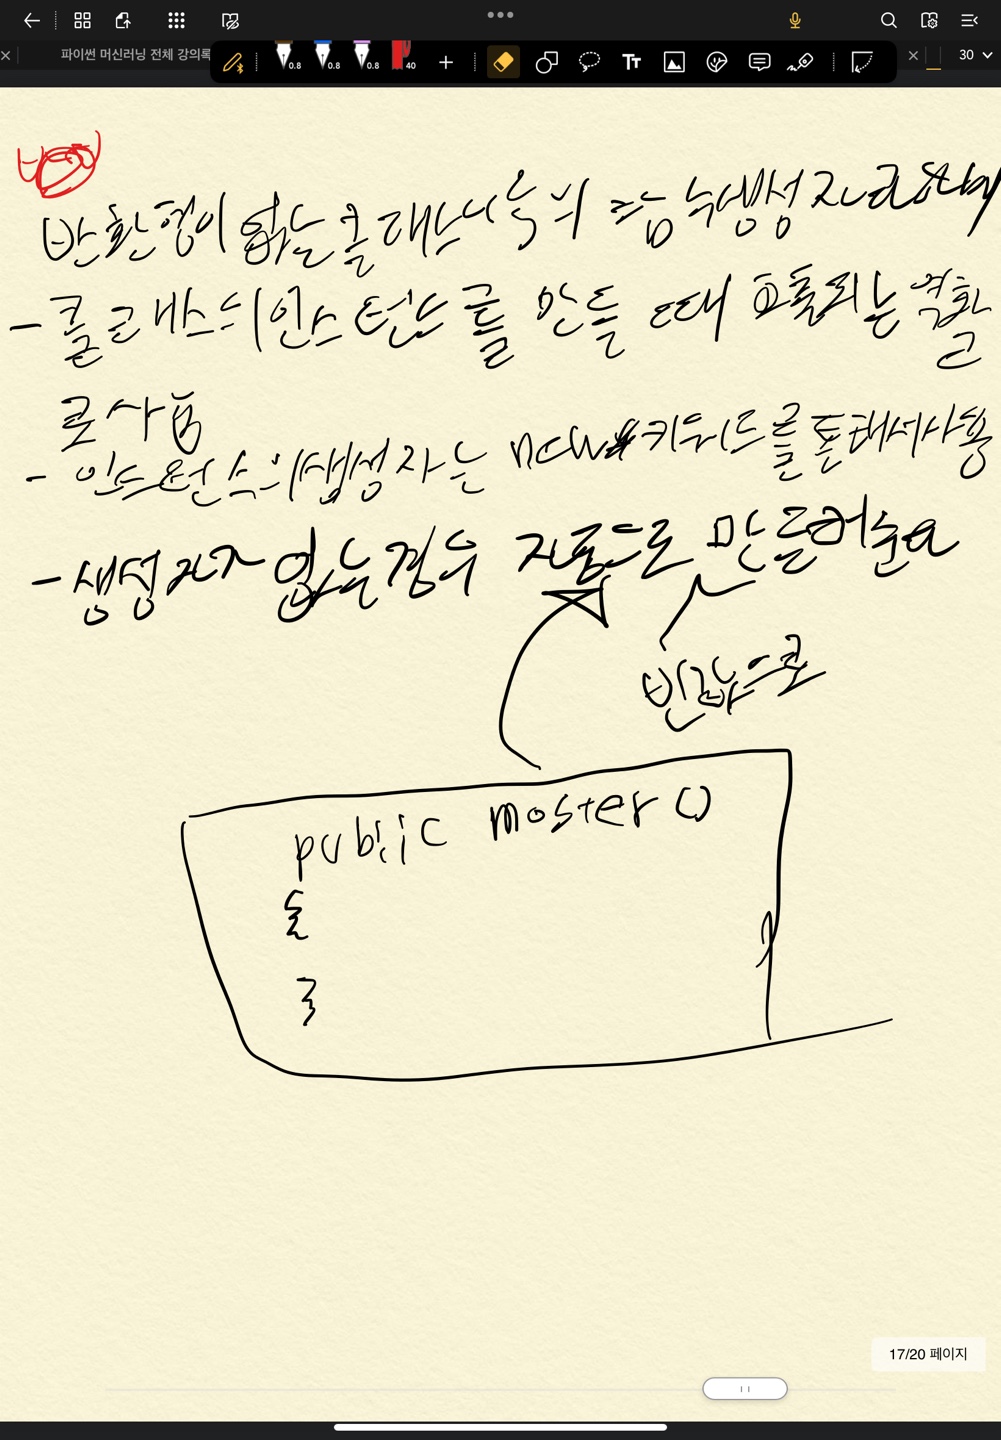 파이썬 머신러닝 전체 강의록
0.8 0.8 0.8 40
TT
30
반환형이 없는 클래스의 함수생성자라
- 클래스의 인스턴스를 만들 때 호출되는 역할
로 사용
- 인스턴스의 생성자는 new 키워드를 통해서 사용
- 생성자가 없는 경우 자동으로 만들어준다
빈값으로
public moster ()
{
}
17/20 페이지